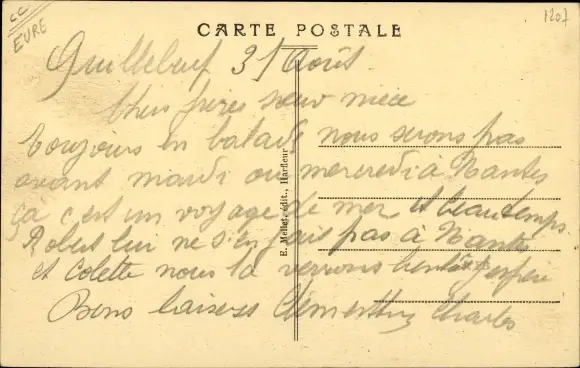 CC
EURE
1207
CARTE POSTALE
Quillebeuf 31 Août
Chers frères sœur niece
Toujours en balade nous serons pas
avant mardi ou mercredi à Nantes
ça c'est un voyage de mer et beau temps
Robert lui ne s'en fait pas à Nantes
et Colette nous la verrons bientôt j'espère
Bons baisers Clementine Charles
E. Mellet, édit., Harfleur